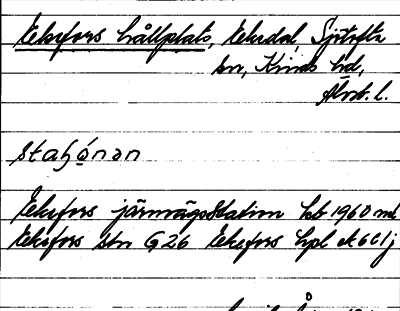 Ekefors hållplats, Ekedal, Sjötofta
sn, Kinds hd,
Älvsb. l.
staʃónən
Ekefors järnvägsstation kb 1960 ml
Ekefors stn G26 Ekefors hpl ek6C1j